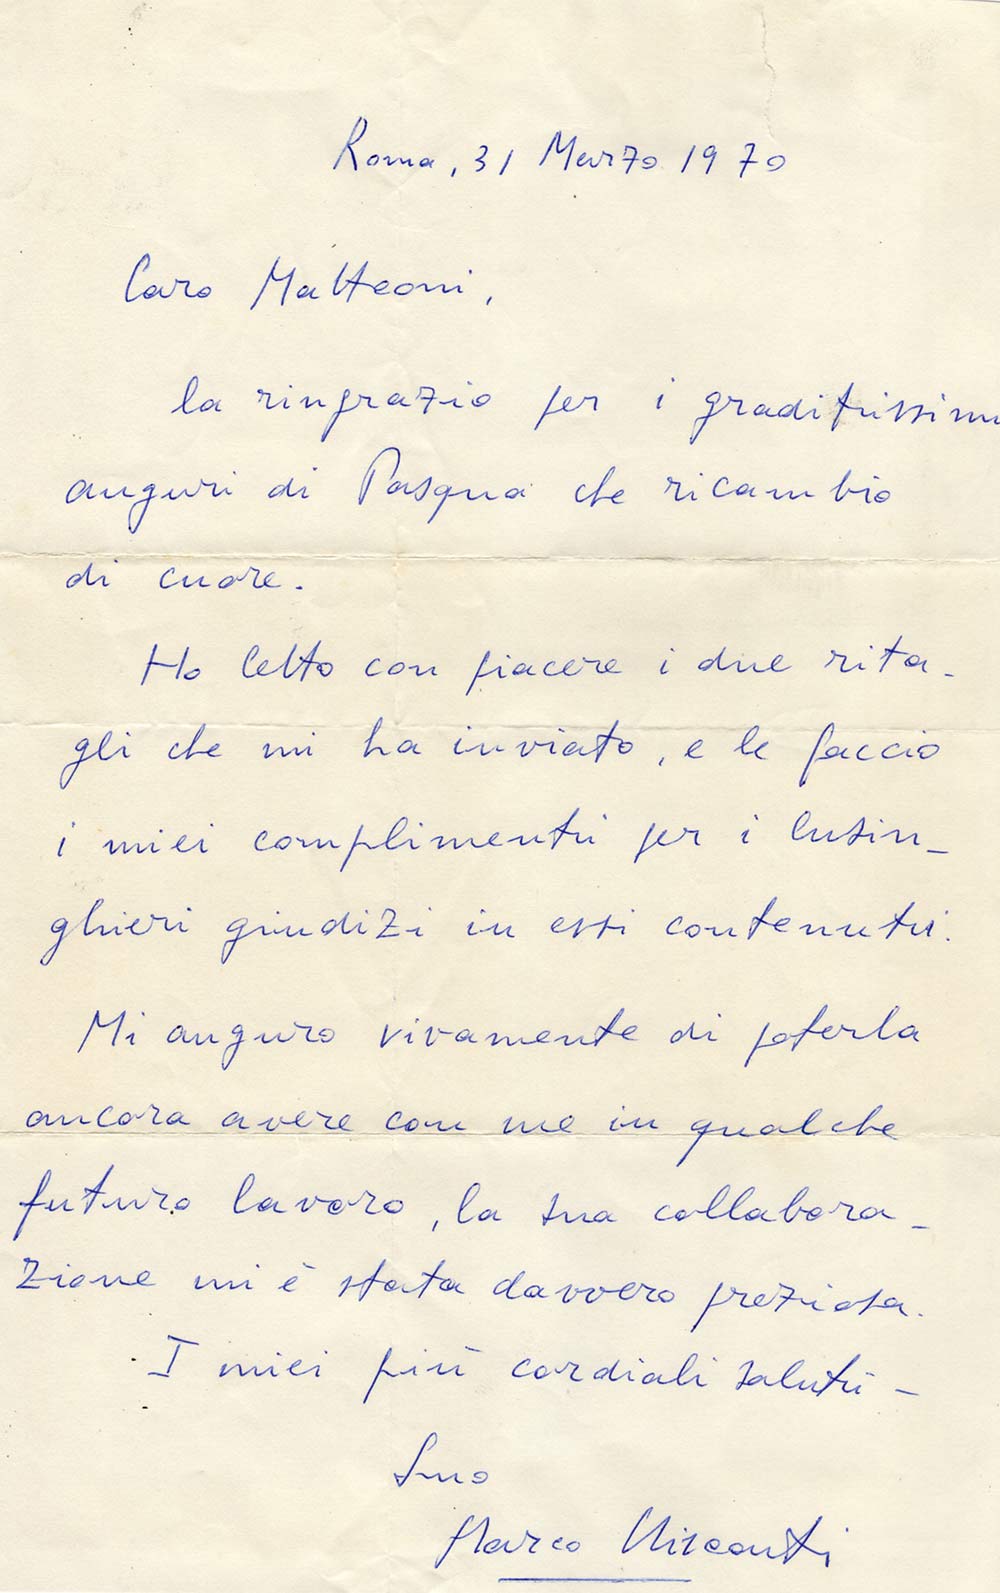 Roma, 31 Marzo 1970
Caro Matteoni,
la ringrazio per i graditissimi
auguri di Pasqua che ricambio
di cuore.
Ho letto con piacere i due rita-
gli che mi ha inviato, e le faccio
i miei complimenti per i lusin-
ghieri giudizi in essi contenuti.
Mi auguro vivamente di poterla
ancora avere con me in qualche
futuro lavoro, la sua collabora-
zione mi è stata davvero preziosa.
I miei più cordiali saluti -
Suo
Marco Visconti